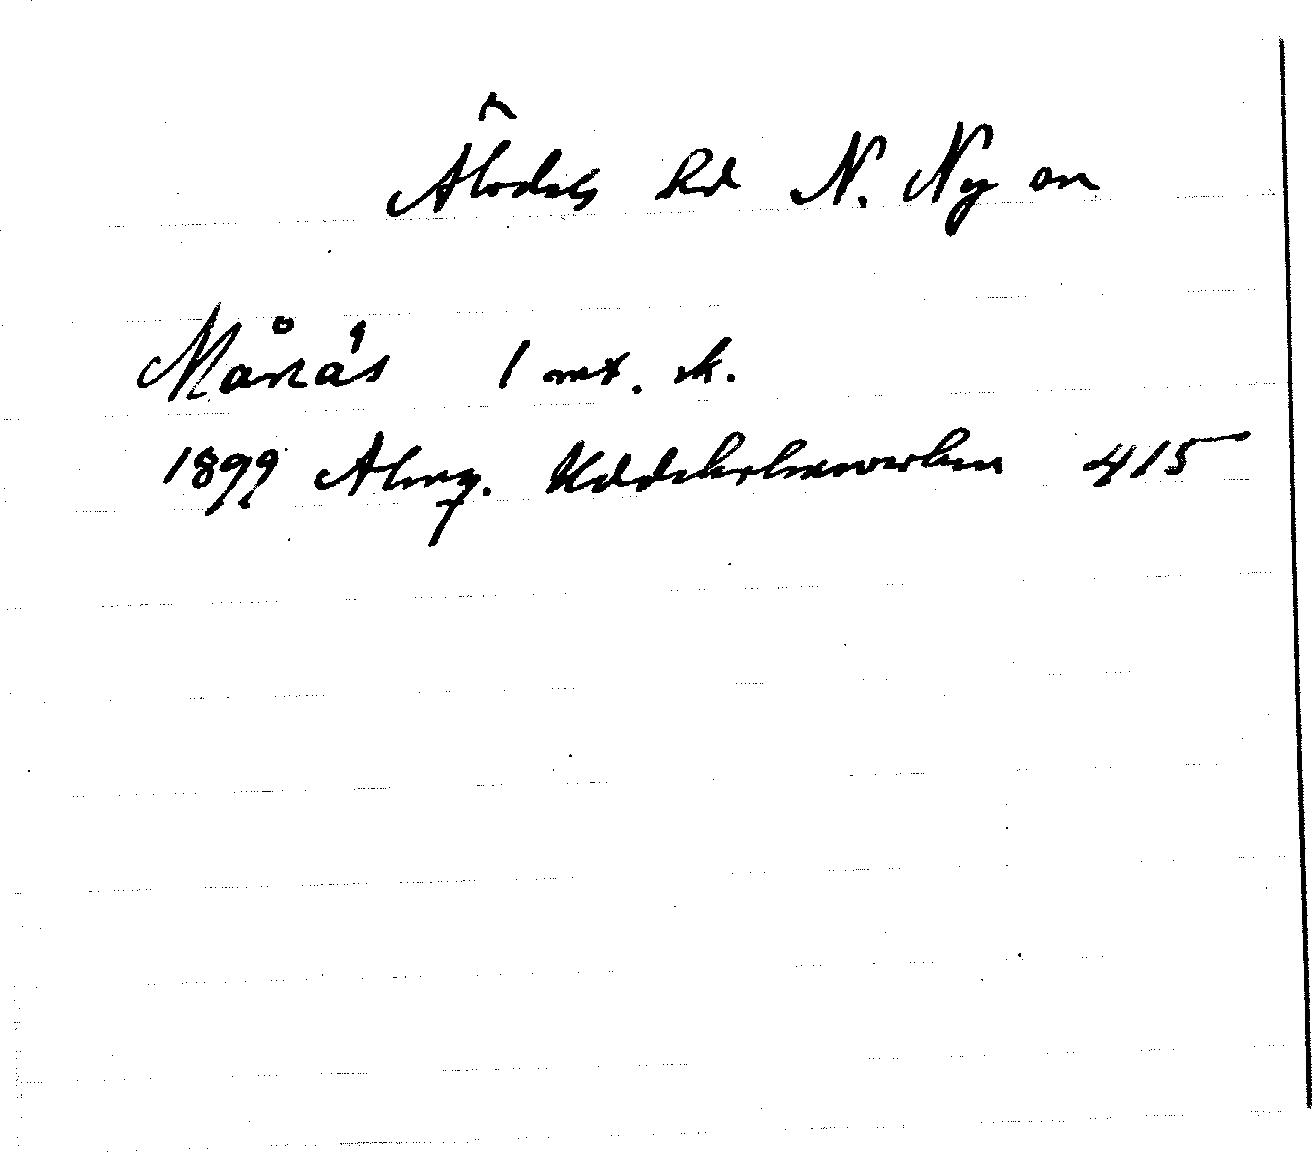 Älvdals hd N. Ny sn
Månäs 1 mt. sk.
1899 Almq. Uddeholmsverken 415